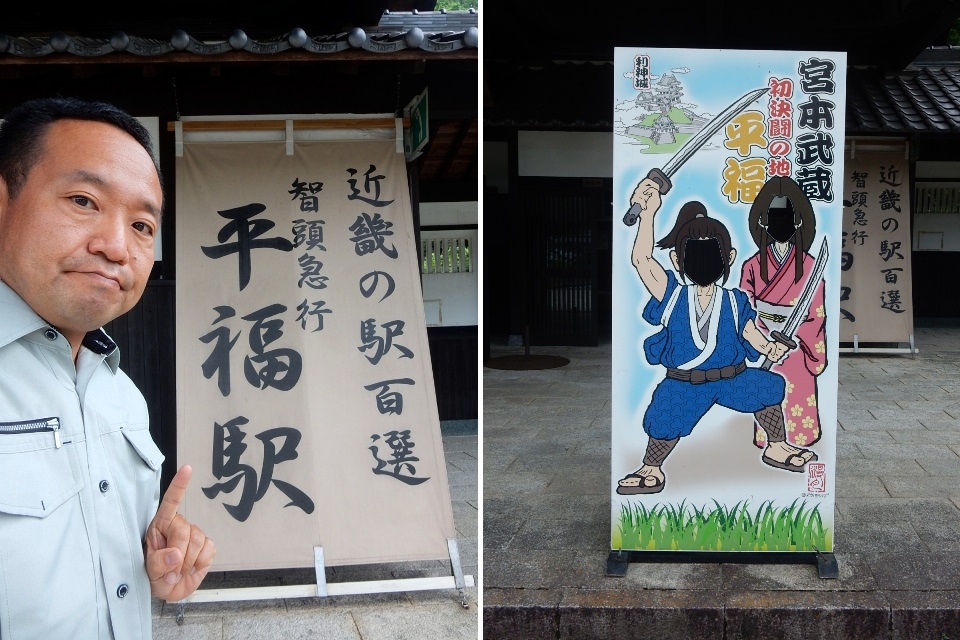 近畿の駅百選
智頭急行
平福駅
利神城
宮本武蔵
初決闘の地
平福
近畿の駅百選
智頭急行